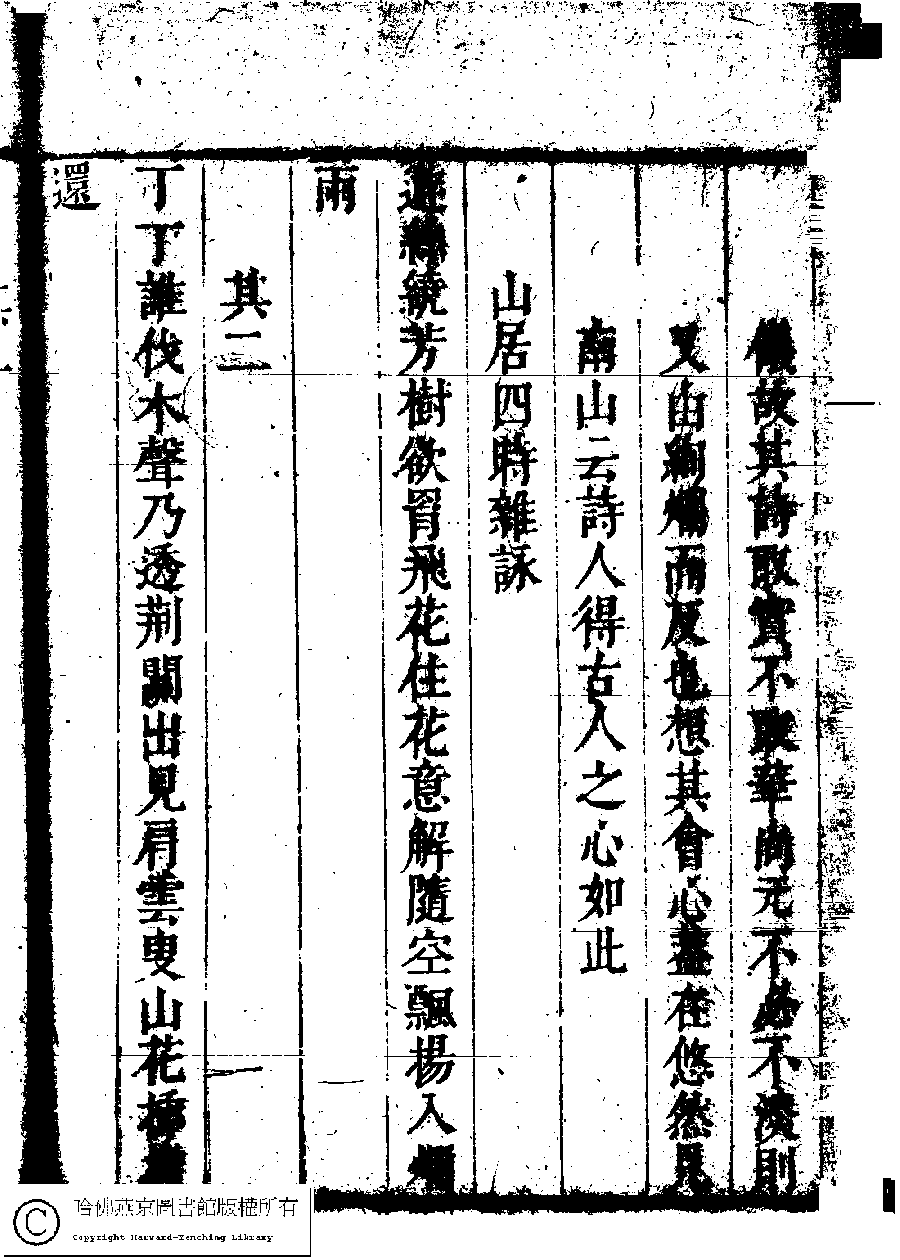 故其詩取實不取華尚元不必不則
又由絢爛而反也想其會心盡在悠然見
南山云詩人得古人之心如此
山居四時雜詠
遊絲繞芳樹欲罥飛花住花意解隨空飄揚入煙
雨
其二
丁丁誰伐木聲乃透荆關出見肩雲叟山花插
還
哈佛燕京圖書館版權所有
Copyright Harvard-Yenching Library